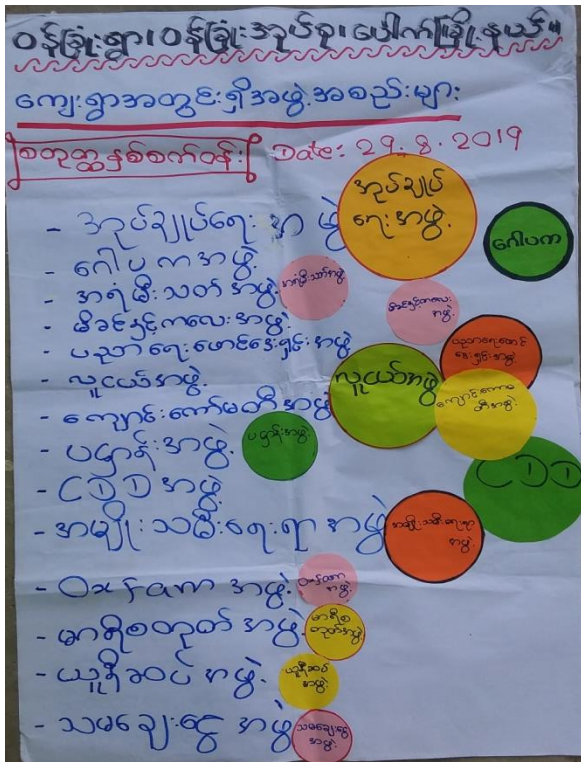 ဝန်ခြုံးရွာ၊ ဝန်ခြုံးအုပ်စု၊ ပေါက်မြို့နယ်။
ကျေးရွာအတွင်းရှိအဖွဲ့အစည်းများ
စတုတ္ထနှစ်စက်ဝန်း Date: 29.8.2019
- အုပ်ချုပ်ရေးအဖွဲ့
- ဂေါပကအဖွဲ့
- အရံမီးသတ်အဖွဲ့
- မိခင်နှင့်ကလေးအဖွဲ့
- ပညာရေးဖောင်ဒေးရှင်းအဖွဲ့
- လူငယ်အဖွဲ့
- ကျောင်းကော်မတီအဖွဲ့
- ပဋ္ဌာန်းအဖွဲ့
- CDD အဖွဲ့
- အမျိုးသမီးရေးရာအဖွဲ့
- Oxfam အဖွဲ့
- မာရီစတုတ်အဖွဲ့
- ယူနီဆပ်အဖွဲ့
- သမချေးငွေအဖွဲ့
အုပ်ချုပ်
ရေးအဖွဲ့
ဂေါပက
အရံမီးသတ်အဖွဲ့
မိခင်နှင့်ကလေး
အဖွဲ့
ပညာရေးဖောင်
ဒေးရှင်းအဖွဲ့
လူငယ်အဖွဲ့
ကျောင်းကော်မ
တီအဖွဲ့
ပဋ္ဌာန်းအဖွဲ့
CDD
အမျိုးသမီးရေးရာ
အဖွဲ့
အဖွဲ့
မာရီစ
တုတ်အဖွဲ့
ယူနီဆပ်
အဖွဲ့
သမချေးငွေ
အဖွဲ့